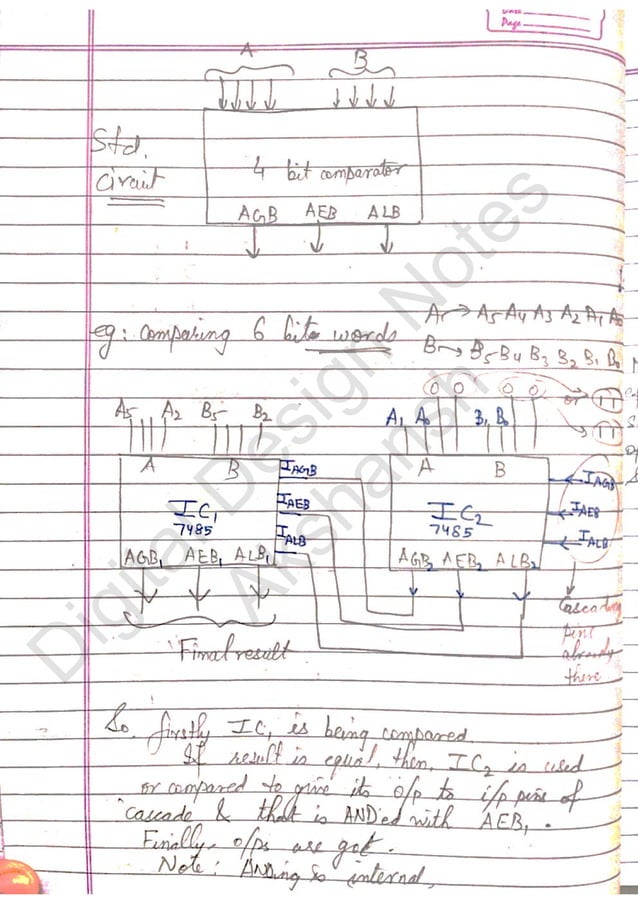 Date
Page
A B
Std.
Circuit
4 bit comparator
AGB AEB ALB
eg: comparing 6 bits words
A → A5 A4 A3 A2 A1 A0
B → B5 B4 B3 B2 B1 B0
0 0 0 0 or 11
11
A5 A2 B5 B2
A1 A0 B1 B0
A B
IAGB
IAEB
IALB
IC1
7485
AGB1 AEB1 ALB1
A B
IC2
7485
AGB2 AEB2 ALB2
IAGB
IAEB
IALB
Final result
Cascading
pins
already
there
So, firstly IC1 is being compared
If result is equal, then, IC2 is used
or compared to give its o/p to i/p pins of
cascade & that is ANDed with AEB1.
Finally o/ps are got.
Note: ANDing is internal,
Digital Design Notes
Aksharish